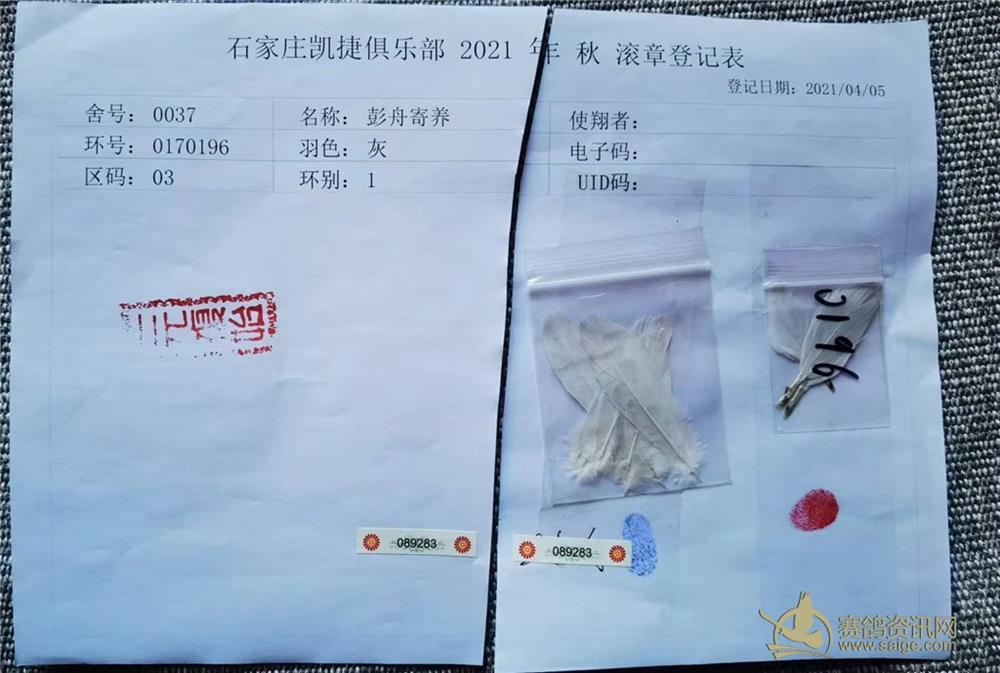 石家庄凯捷俱乐部 2021 年 秋 滚章登记表
登记日期: 2021/04/05
舍号: 0037 名称: 彭舟寄养 使翔者:
环号: 0170196 羽色: 灰 电子码:
区码: 03 环别: 1 UID码:
0196
089283
089283
赛鸽资讯网
www.saige.com